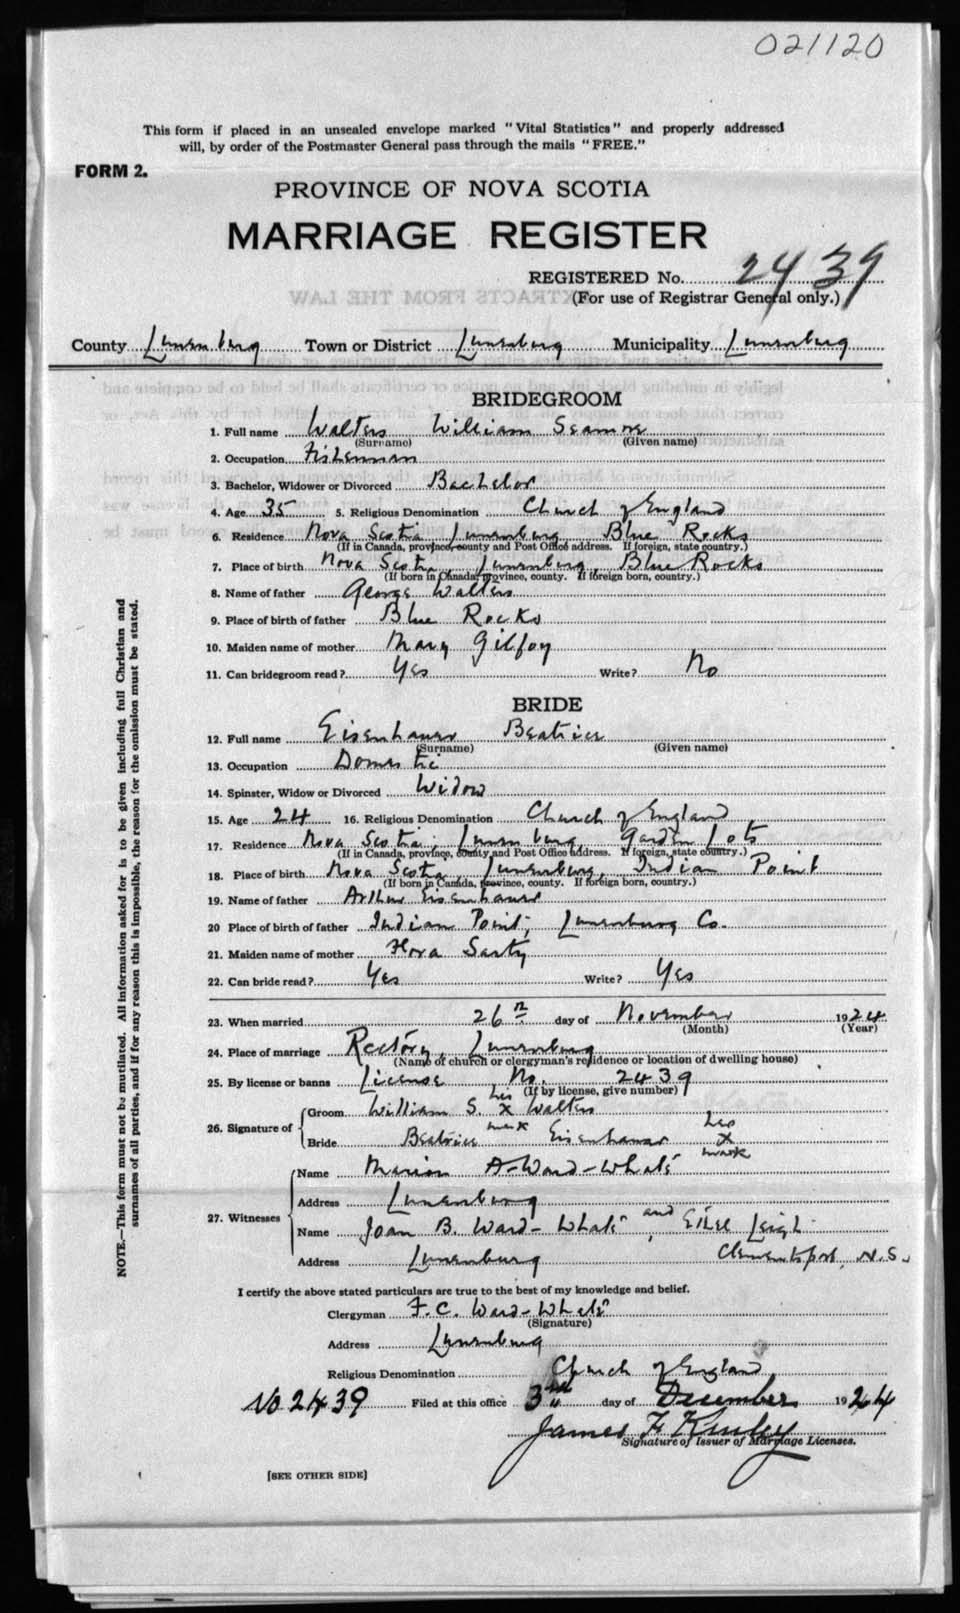 021120
This form if placed in an unsealed envelope marked "Vital Statistics" and properly addressed
will, by order of the Postmaster General pass through the mails "FREE."
FORM 2.
PROVINCE OF NOVA SCOTIA
MARRIAGE REGISTER
REGISTERED No. 2439
(For use of Registrar General only.)
County Lunenburg Town or District Lunenburg Municipality Lunenburg
BRIDEGROOM
1. Full name Walters William Seamore
(Surname) (Given name)
2. Occupation Fisherman
3. Bachelor, Widower or Divorced Bachelor
4. Age 35 5. Religious Denomination Church of England
6. Residence Nova Scotia Lunenburg Blue Rocks
(If in Canada, province, county and Post Office address. If foreign, state country.)
7. Place of birth Nova Scotia, Lunenburg, Blue Rocks
(If born in Canada, province, county. If foreign born, country.)
8. Name of father George Walters
9. Place of birth of father Blue Rocks
10. Maiden name of mother Mary Gilfoy
11. Can bridegroom read? Yes Write? No
BRIDE
12. Full name Eisenhauer Beatrice
(Surname) (Given name)
13. Occupation Domestic
14. Spinster, Widow or Divorced Widow
15. Age 24 16. Religious Denomination Church of England
17. Residence Nova Scotia, Lunenburg, Garden Lots
(If in Canada, province, county and Post Office address. If foreign, state country.)
18. Place of birth Nova Scotia, Lunenburg, Indian Point
(If born in Canada, province, county. If foreign born, country.)
19. Name of father Arthur Eisenhauer
20 Place of birth of father Indian Point, Lunenburg Co.
21. Maiden name of mother Flora Sarty
22. Can bride read? Yes Write? Yes
23. When married 26th day of November 1924
(Month) (Year)
24. Place of marriage Rectory, Lunenburg
(Name of church or clergyman's residence or location of dwelling house)
25. By license or banns License No. 2439
(If by license, give number)
26. Signature of Groom William S. his x mark Walters
Bride Beatrice Eisenhauer her x mark
27. Witnesses Name Marion A-Ward-Whate
Address Lunenburg
Name Joan B. Ward-Whate, and Ethel Leigh
Address Lunenburg Clementsport, N.S.
NOTE.—This form must not be mutilated. All information asked for is to be given including full Christian and
surnames of all parties, and if for any reason this is impossible, the reason for the omission must be stated.
I certify the above stated particulars are true to the best of my knowledge and belief.
Clergyman F.C. Ward-Whate
(Signature)
Address Lunenburg
Religious Denomination Church of England
No 2439 Filed at this office 3rd day of December 1924
James F Kinley
Signature of Issuer of Marriage Licenses.
[SEE OTHER SIDE]